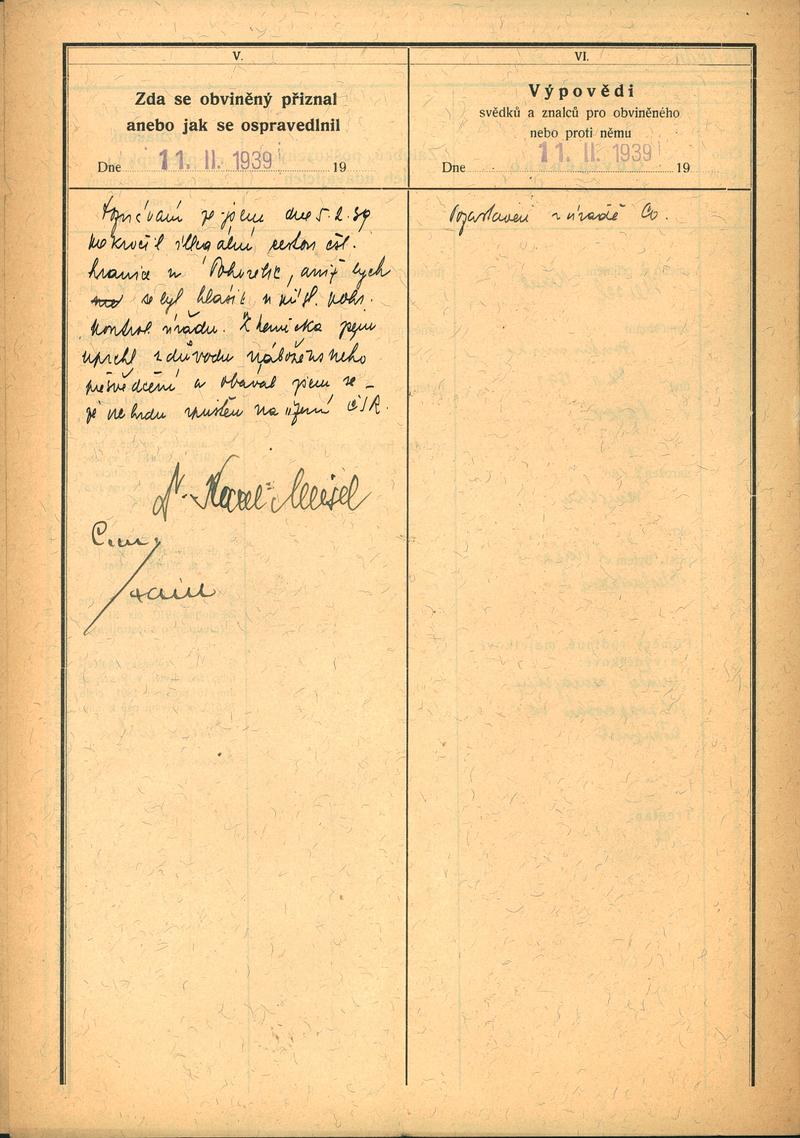 V.
Zda se obviněný přiznal
anebo jak se ospravedlnil
Dne 11. II. 1939 19
že jsem dne 5.2.39
překročil illegální cestou čsl.
hranice u Pohořelic, aniž bych
se byl hlásil u přísl. pohr.
kontrol úřadu. Z Německa jsem
uprchl z důvodu náboženského
přesvědčení a obával jsem se
že nebudu vpuštěn na území ČSR.
Dr. Karel Meisel
VI.
Výpovědi
svědků a znalců pro obviněného
nebo proti němu
Dne 11. II. 1939 19
v úřadě